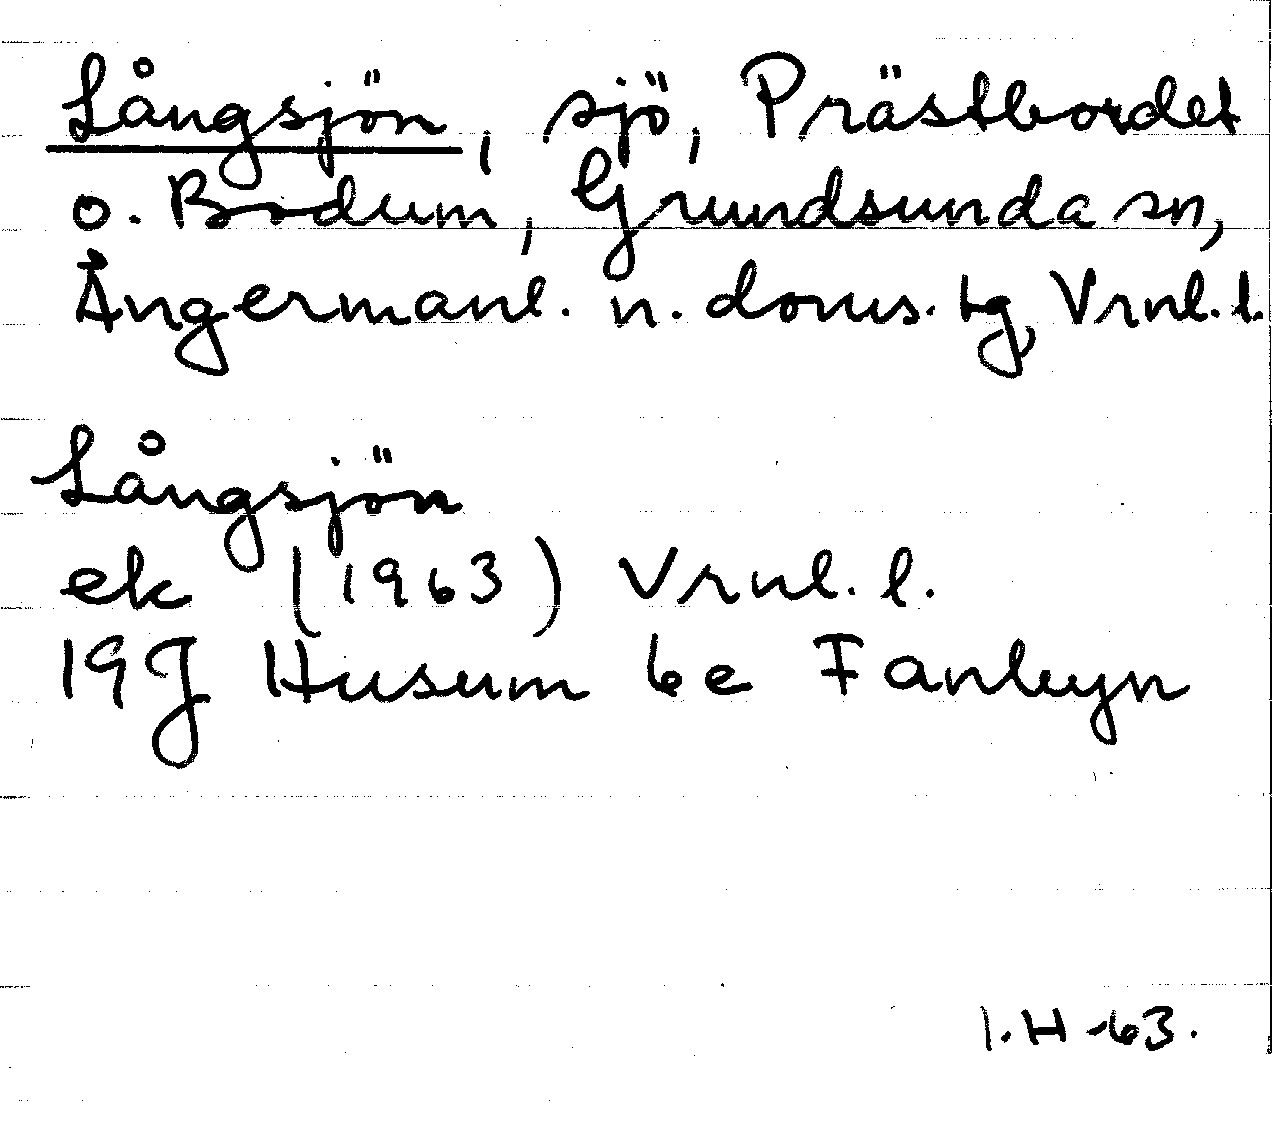 Långsjön, sjö, Prästbordet
o. Bodum, Grundsunda sn,
Ångermanl. n. doms. tg, Vrnl. l.
Långsjön
ek (1963) Vrnl. l.
19J Husum 6e Fanbyn
I.H -63.